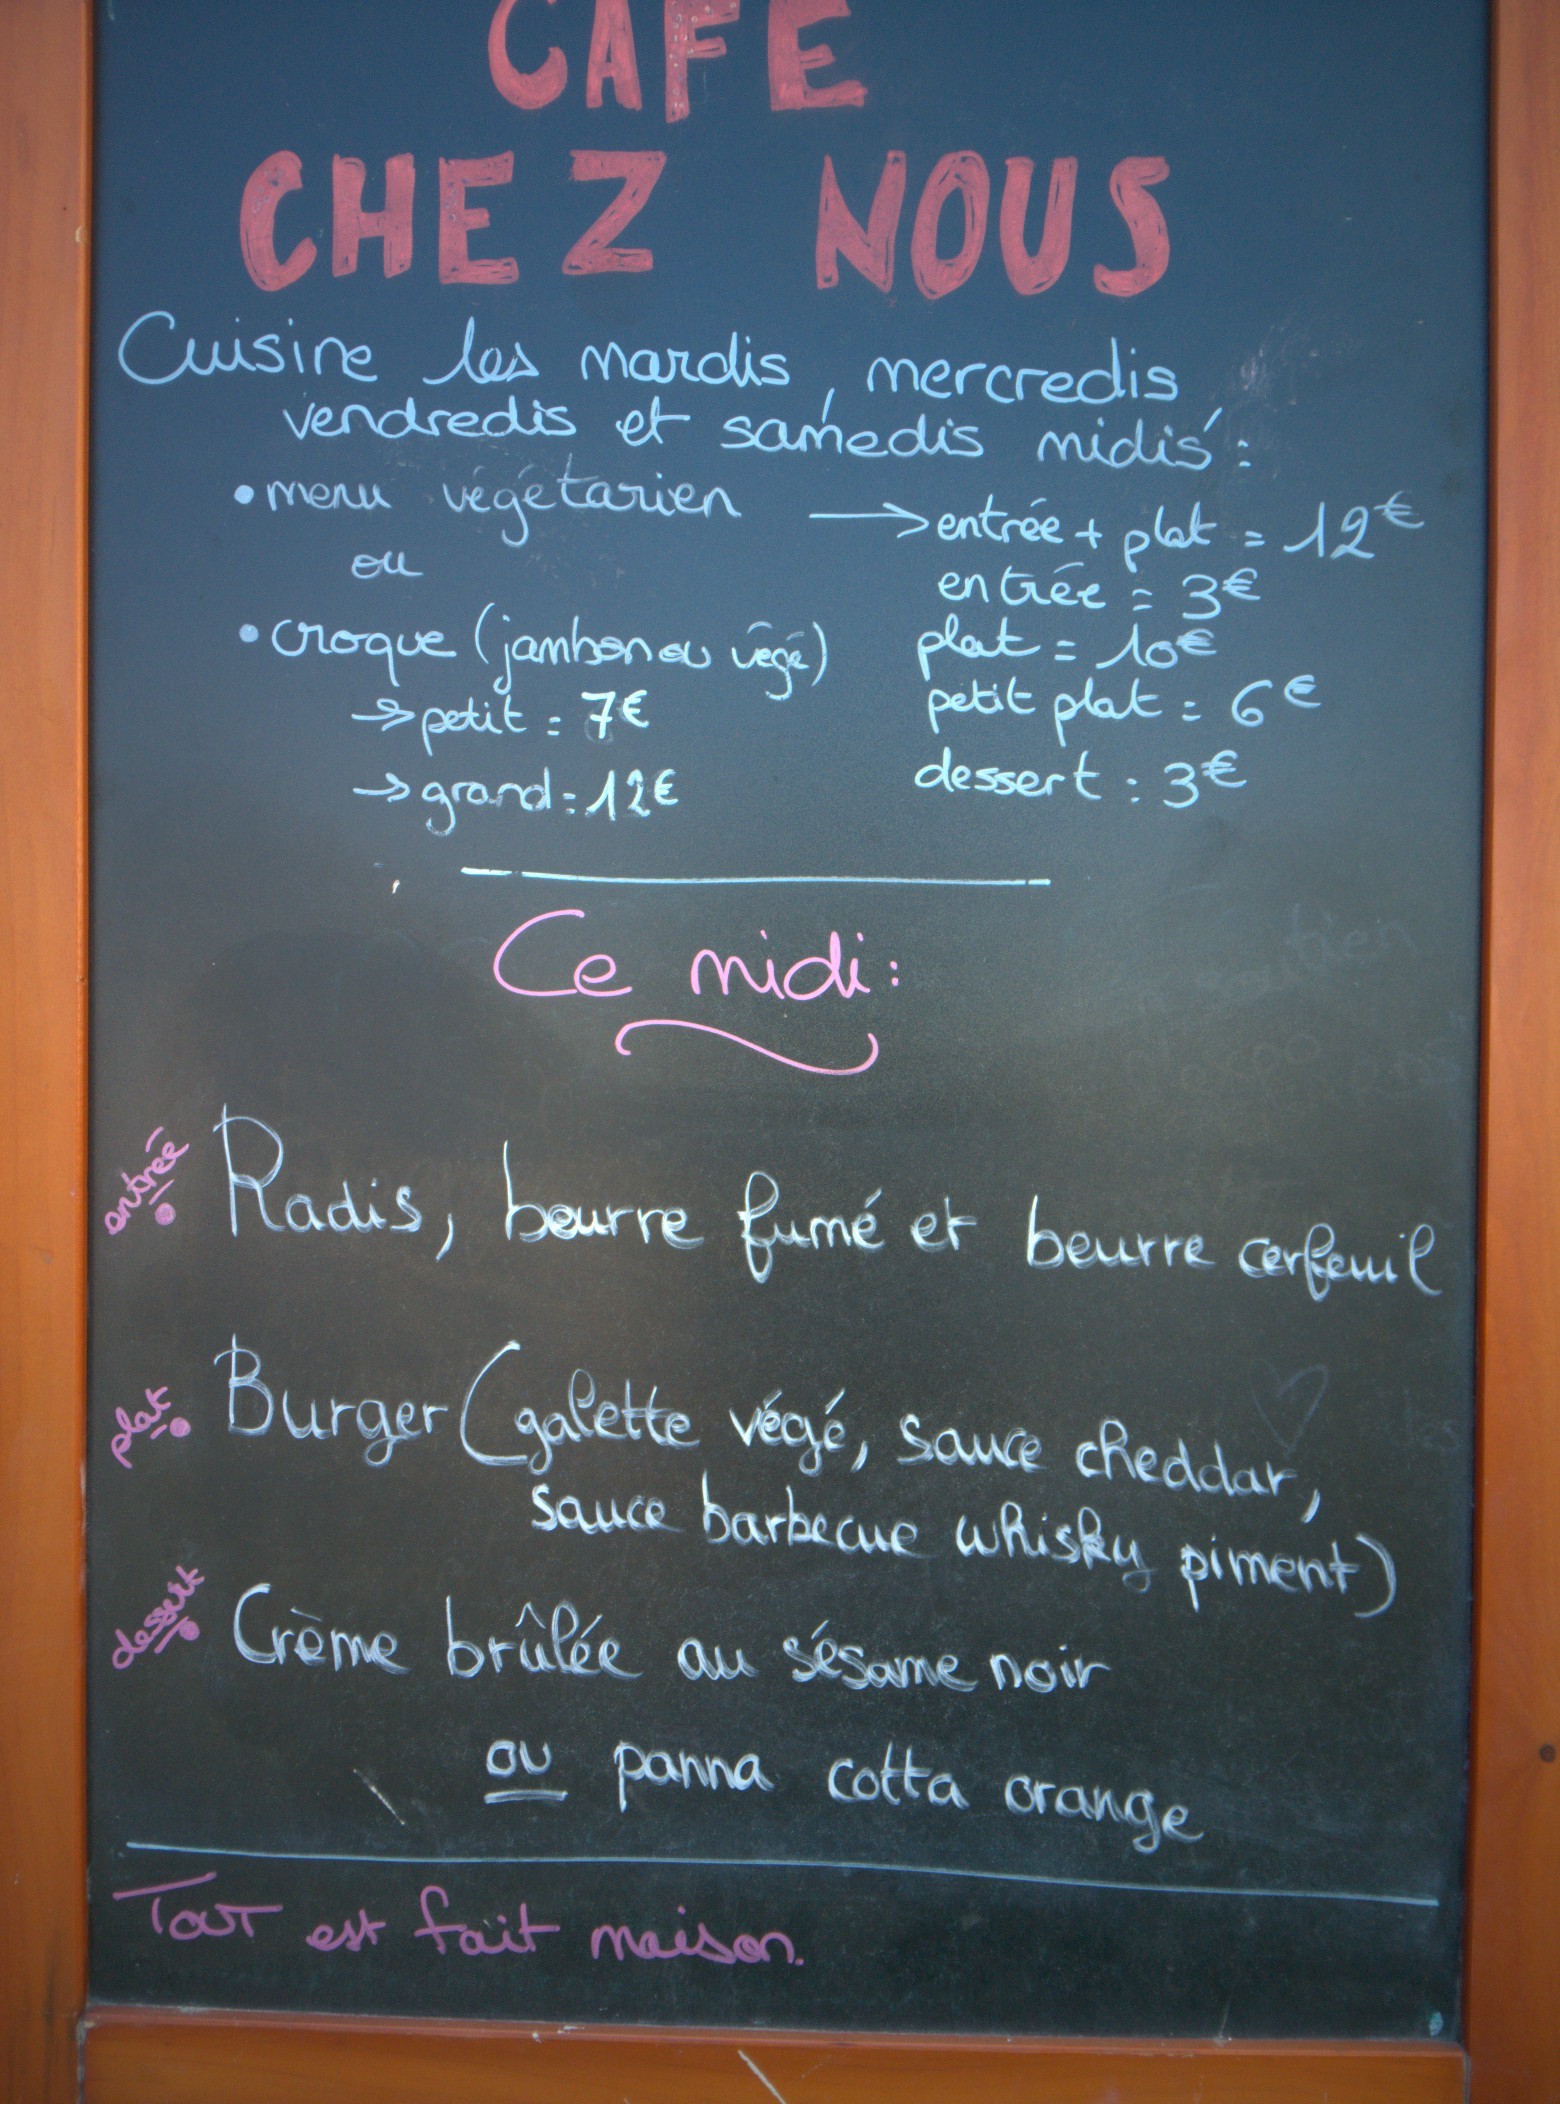 CAFE
CHEZ NOUS
Cuisine les mardis, mercredis
vendredis et samedis midis :
• menu végétarien → entrée + plat = 12€
ou
entrée = 3€
• croque (jambon ou végé)
plat = 10€
→ petit = 7€
petit plat = 6€
→ grand = 12€
dessert : 3€
Ce midi :
entrée
Radis, beurre fumé et beurre cerfeuil
plat
Burger (galette végé, sauce cheddar,
sauce barbecue whisky piment)
dessert
Crème brûlée au sésame noir
ou panna cotta orange
Tout est fait maison.